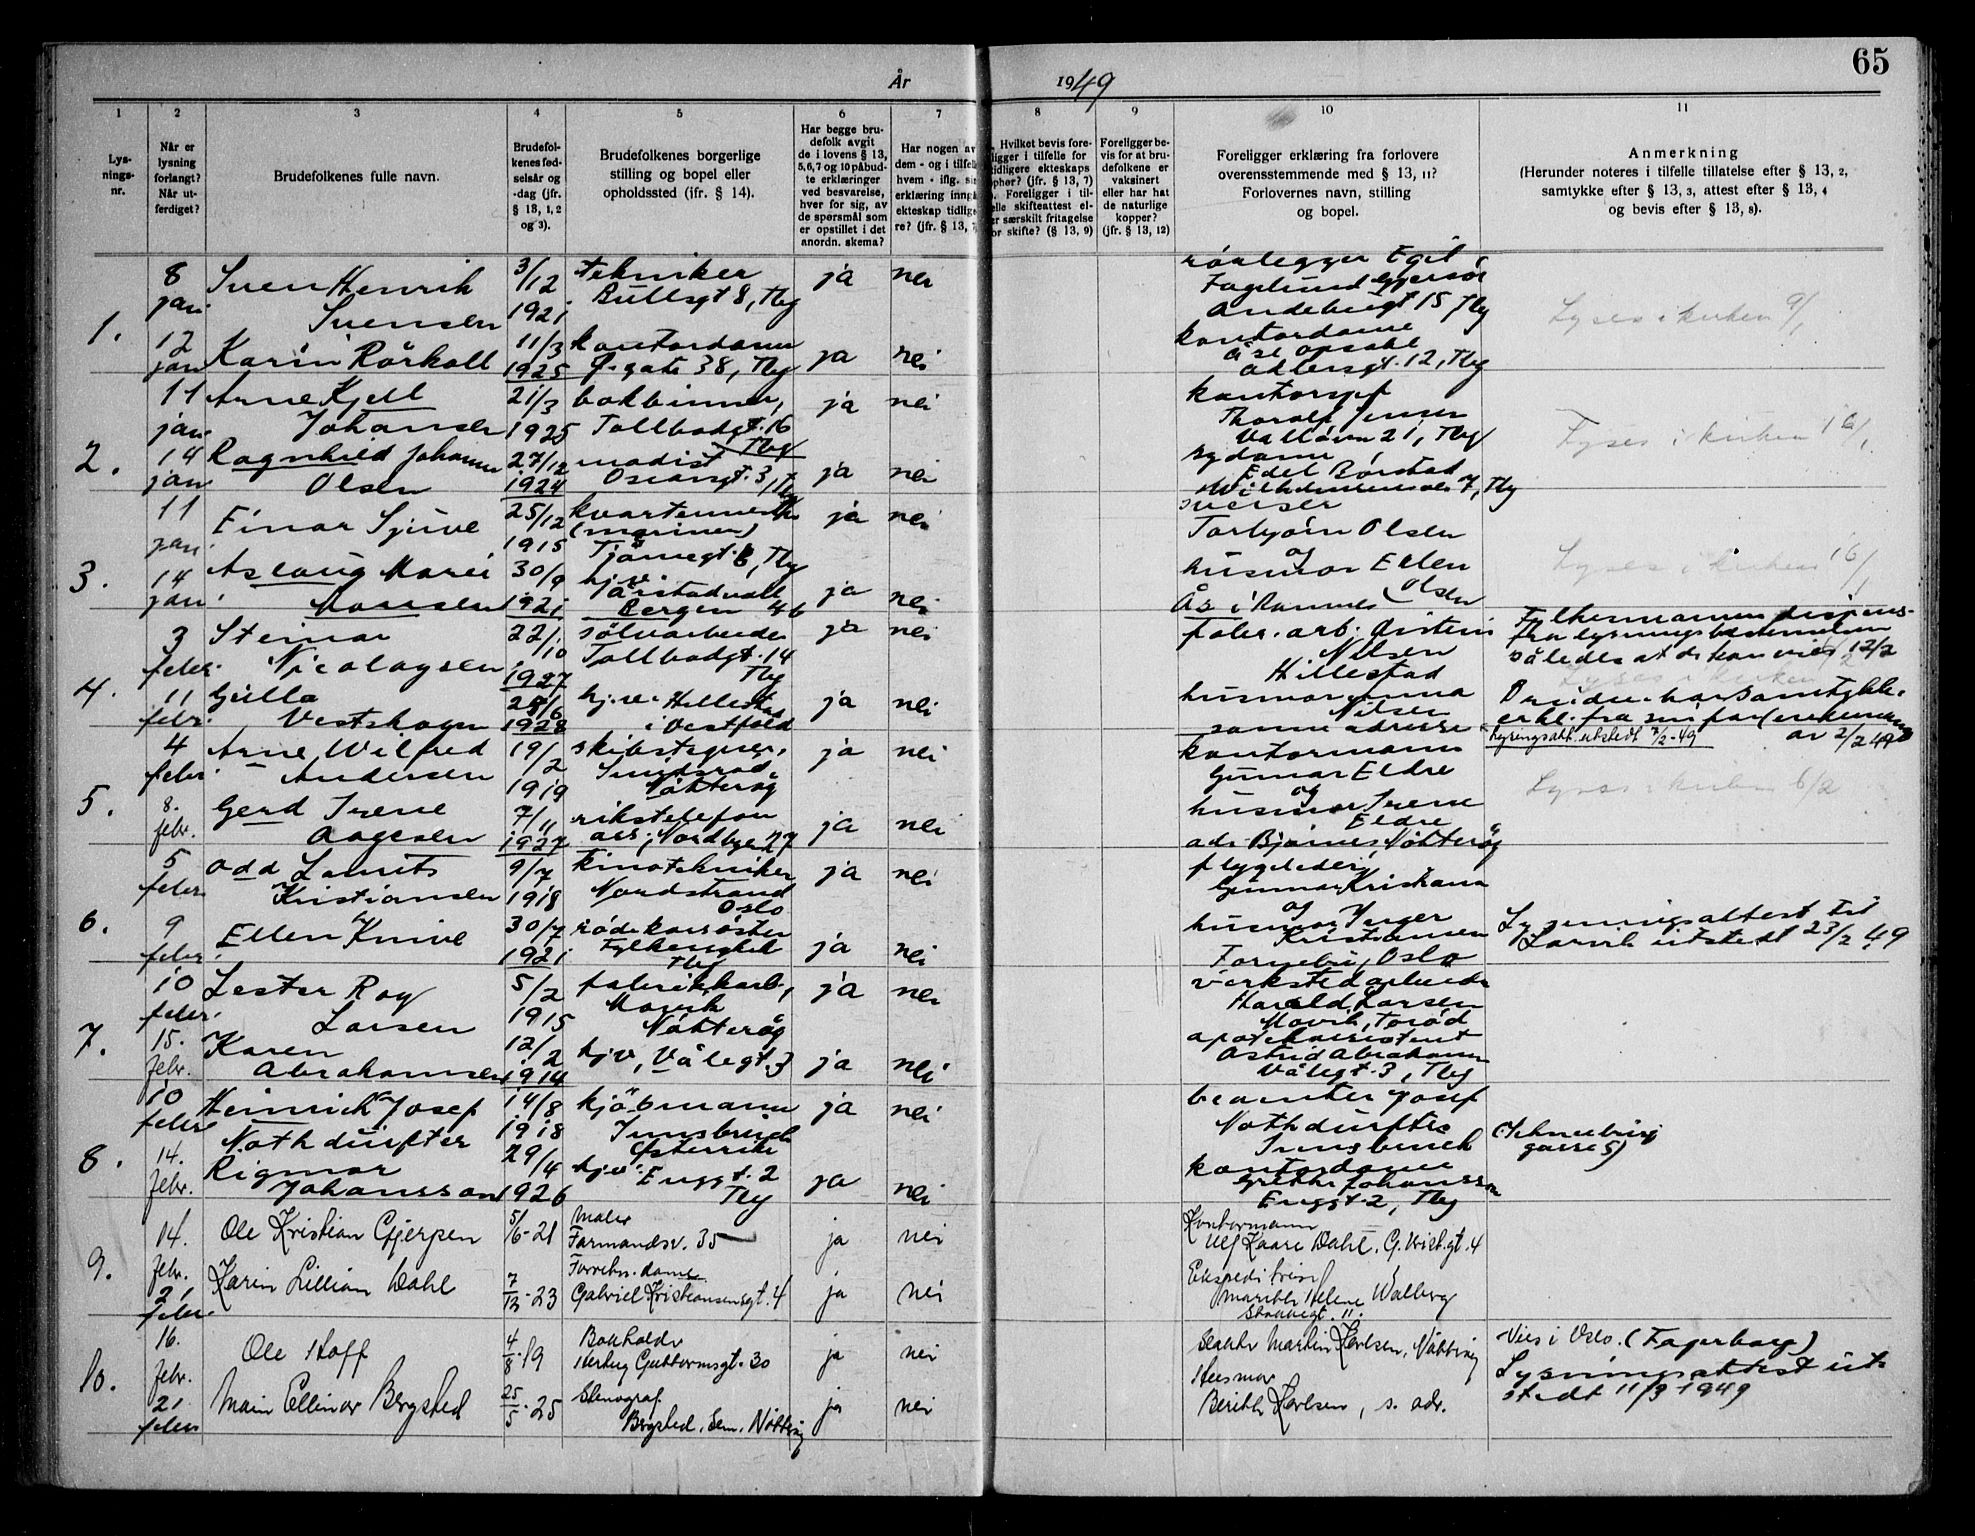 65
År 1949
1 2 3 4 5 6 7 8 9 10 11
Lys-
nings-
nr.
Når er
lysning
forlangt?
Når ut-
ferdiget?
Brudefolkenes fulle navn.
Brudefol-
kenes fød-
selsår og
-dag (jfr.
§ 13, 1, 2
og 3).
Brudefolkenes borgerlige
stilling og bopel eller
opholdssted (jfr. § 14).
Har begge bru-
defolk avgit
de i lovens § 13,
5, 6, 7 og 10 påbud-
te erklæringer
ved besvarelse,
hver for sig, av
de spørsmål som
er opstillet i det
anordn. skema?
Har nogen av
dem - og i tilfelle
hvem - iflg. sin
erklæring inngå
ekteskap tidlige-
re? (jfr. § 13, 7
Hvilket bevis fore-
ligger i tilfelle for
tidligere ekteskaps
ophør? (jfr. § 13, 7)
Foreligger i til-
elle skifteattest el-
er særskilt fritagelse
or skifte? (§ 13, 9)
Foreligger be-
vis for at bru-
defolkene er
vaksinert
eller har hat
de naturlige
kopper?
(jfr. § 13, 12)
Foreligger erklæring fra forlovere
overensstemmende med § 13, 11?
Forlovernes navn, stilling
og bopel.
Anmerkning
(Herunder noteres i tilfelle tillatelse efter § 13, 2,
samtykke efter § 13, 3, attest efter § 13, 4
og bevis efter § 13, 8).
1.
8 jan. Sven Henrik
Svensen
3/12 1921
tekniker
Bullsgt 8, Tbg
ja nei
rørlegger Egil
Fagelund
15 Tbg
Lyses i kirken 9/1
12 jan Karin Rörkoll
11/3 1925
kontordame
Ø-gate 38, Tbg
ja nei
kontordame
Åse Opsahl
12, Tbg
2.
11 jan. Arne Kjell
Johansen
21/3 1925
bokbinder,
Tollbodgt. 16
Tbg
ja nei
Thorolf Jensen
21, Tbg
Lyses i kirken 16/1
14 jan. Ragnhild Johanne
Olsen
27/12 1924
modist
3, Tbg
ja nei
sydame
Edel Börstad
7, Tbg
3.
11 jan. Einar Sjuve
25/12 1915
(marinen)
Tjømegt. 6, Tbg
ja nei
sveiser
Torbjörn Olsen
og
Lyses i kirken 16/1
14 jan. Aslaug Marie
Hansen
30/9 1921
hjv.
Bergen 46
ja nei
husmor Ellen
Olsen
Ås i Ramnes
4.
3 febr. Steinar
Nicolaysen
22/10 1927
sölvarbeider
Tollbodgt. 14
Tbg
ja nei
fabr. arb. Öistein
Nilsen
Hillestad
Fylkesmannens dispens.
fra lysningsbestemmelsen
således at de kan vies 12/2
Lyses i kirken
11 febr. Gulla
Vestskogen
1928
hj.v. Hillestad
i Vestfold
ja nei
husmor Anna
Nilsen
samme adresse
Bruden har samtykke-
erkl. fra sin far
av 2/2 49
Lysningsatt. utstedt
5.
4 febr. Arne Wilfred
Andersen
19/2 1919
Smidsrød,
Nötteröy
ja nei
kontormann
Gunnar Eldre
og
Lyses i kirken 6/2
8. febr. Gerd Irene
Aagesen
7/11 1927
rikstelefon
ass. Nordbyen 27
ja nei
husmor Irene
Eldre
adr. Bjørnes, Nötteröy
6.
5 febr. Odd Laurits
Kristiansen
9/7 1918
kinotekniker
Nordstrand
Oslo
ja nei
flygeleder
Gunnar Kristiansen
og
9 febr. Ellen Knive
30/7 1921
röde korssöster
Tbg
ja nei
husmor Inger
Kristiansen
Fornebu, Oslo
Lysningsattest til
Larvik utstedt 23/2 49
7.
10 febr. Lester Roy
Larsen
5/2 1915
fabrikkarb.,
Hovik
Nötteröy
ja nei
verkstedarbeider
Harald Larsen
Torød
15. febr. Karen
Abrahamsen
12/2 1914
hjv, Vålegt. 3
ja nei
apotekassistent
Astrid Abrahamsen
Vålegt. 3, Tbg
8.
10 febr Heinrich Josef
Nothdurfter
14/8 1918
kjöbmann
Innsbruck
Østerrike
ja nei
beamter Josef
Nothdurfter
Innsbruck
(Schneeburg
gasse 5)
14. febr. Rigmor
Johansson
29/4 1926
hjv.
Enggt. 2
Tbg
ja nei
kontordame
Grethe Johansson
Enggt. 2, Tbg
9.
14. febr. Ole Kristian Gjerpen
5/6-21
Maler
Farmandsv. 35
ja nei
Kontormann
Ulf Kaare Dahl.
21 febr. Karin Lillian Dahl
7/12-23
Forretn. dame
Gabriel Kristiansensgt. 4
ja nei
Ekspeditrise
Marthe Helene Walberg
10.
16. febr. Ole Hoff
4/8-19
Bokholder
Hertug Guttormsgt. 30
ja nei
Martin Karlsen, Nötteröy
Vies i Oslo. (Fagerborg)
Lysningsattest ut-
stedt 11/3 1949
21 febr Main Ellinor Bergsted
25/5-25
Stenograf
Bergsted, Sem, Nötteröy
ja nei
Husmor
Berith Karlsen, s. adr.